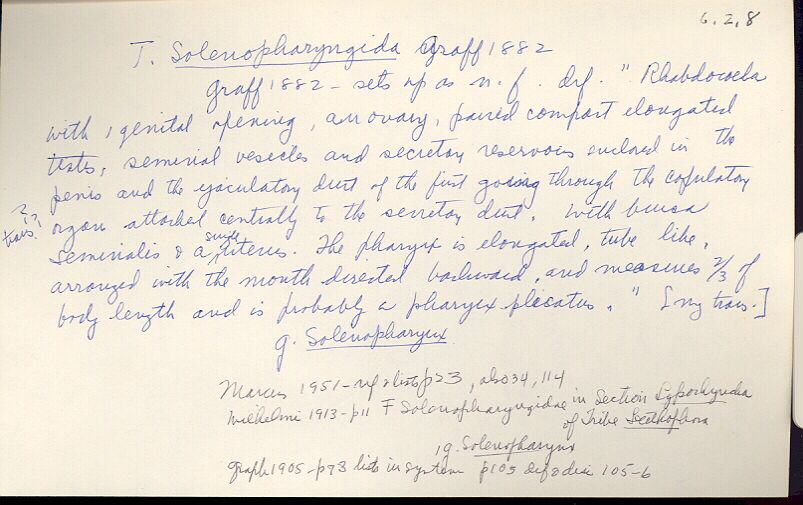 6.2,8
T. Solenopharyngida Graff 1882
Graff 1882 - sets up as n. f. def. " Rhabdocoela
with 1 genital opening, an ovary, paired compact elongated
testes, seminal vesicles and secretory reservous enclosed in the
penis and the ejaculatory duct of the first going through the copulatory
? trans.?
organ attached centrally to the secretory duct. With bursa
seminalis & a single uterus. The pharynx is elongated, tube like,
arranged with the mouth directed backward, and measures 2/3 of
body length and is probably a pharynx plicatus." [my trans.]
g. Solenopharynx
Marcus 1951 - ref & lists p23, also 34, 114
Wilhelmi 1913 - p11 F Solenopharyngidae in Section Lypochynchia
of Tribe
1 g. Solenopharynx
Graff 1905 - p73 lists in system p105 def & disc 105-6